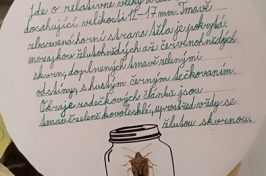 Jde o relativně velký
dosahující velikosti 11-17mm. Tmavě
zbarvená horní strana těla je pokrytá
mozaikou žlutohnědých až červenohnědých
skvrn, doplněných tmavě zelenými
odstíny, s hustým černým tečkováním.
Okraje zadečkových článků jsou
tmavě zeleně kovolesklé, uprostřed vždy se
žlutou skvrnou.